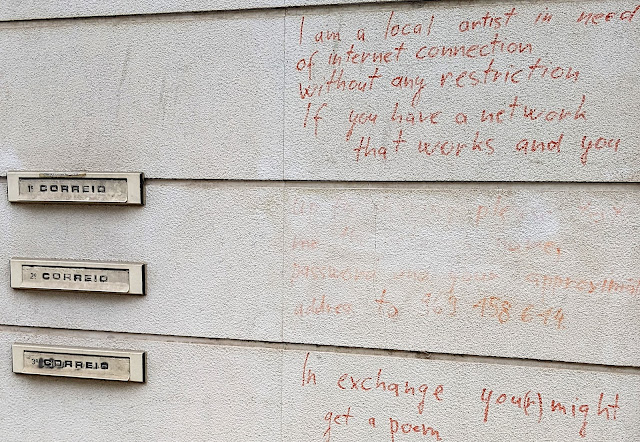 I am a local artist in need
of internet connection
without any restriction
If you have a network
that works and you
me
password approximate
address to
In exchange you(r) might
get a poem
1º CORREIO
2º CORREIO
3º CORREIO